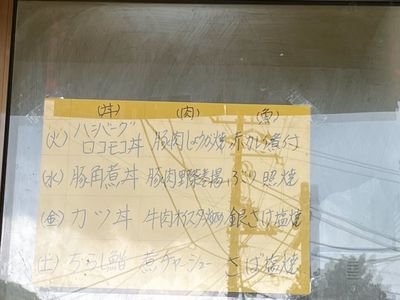 (丼) (肉) (魚)
(火) ハンバーグロコモコ丼 豚肉しょうが焼 赤カレイ煮付
(水) 豚角煮丼 豚肉野菜巻揚 ぶり照焼
(金) カツ丼 牛肉 銀さけ塩焼
(土) ちらし鮨 煮チャーシュー さば塩焼